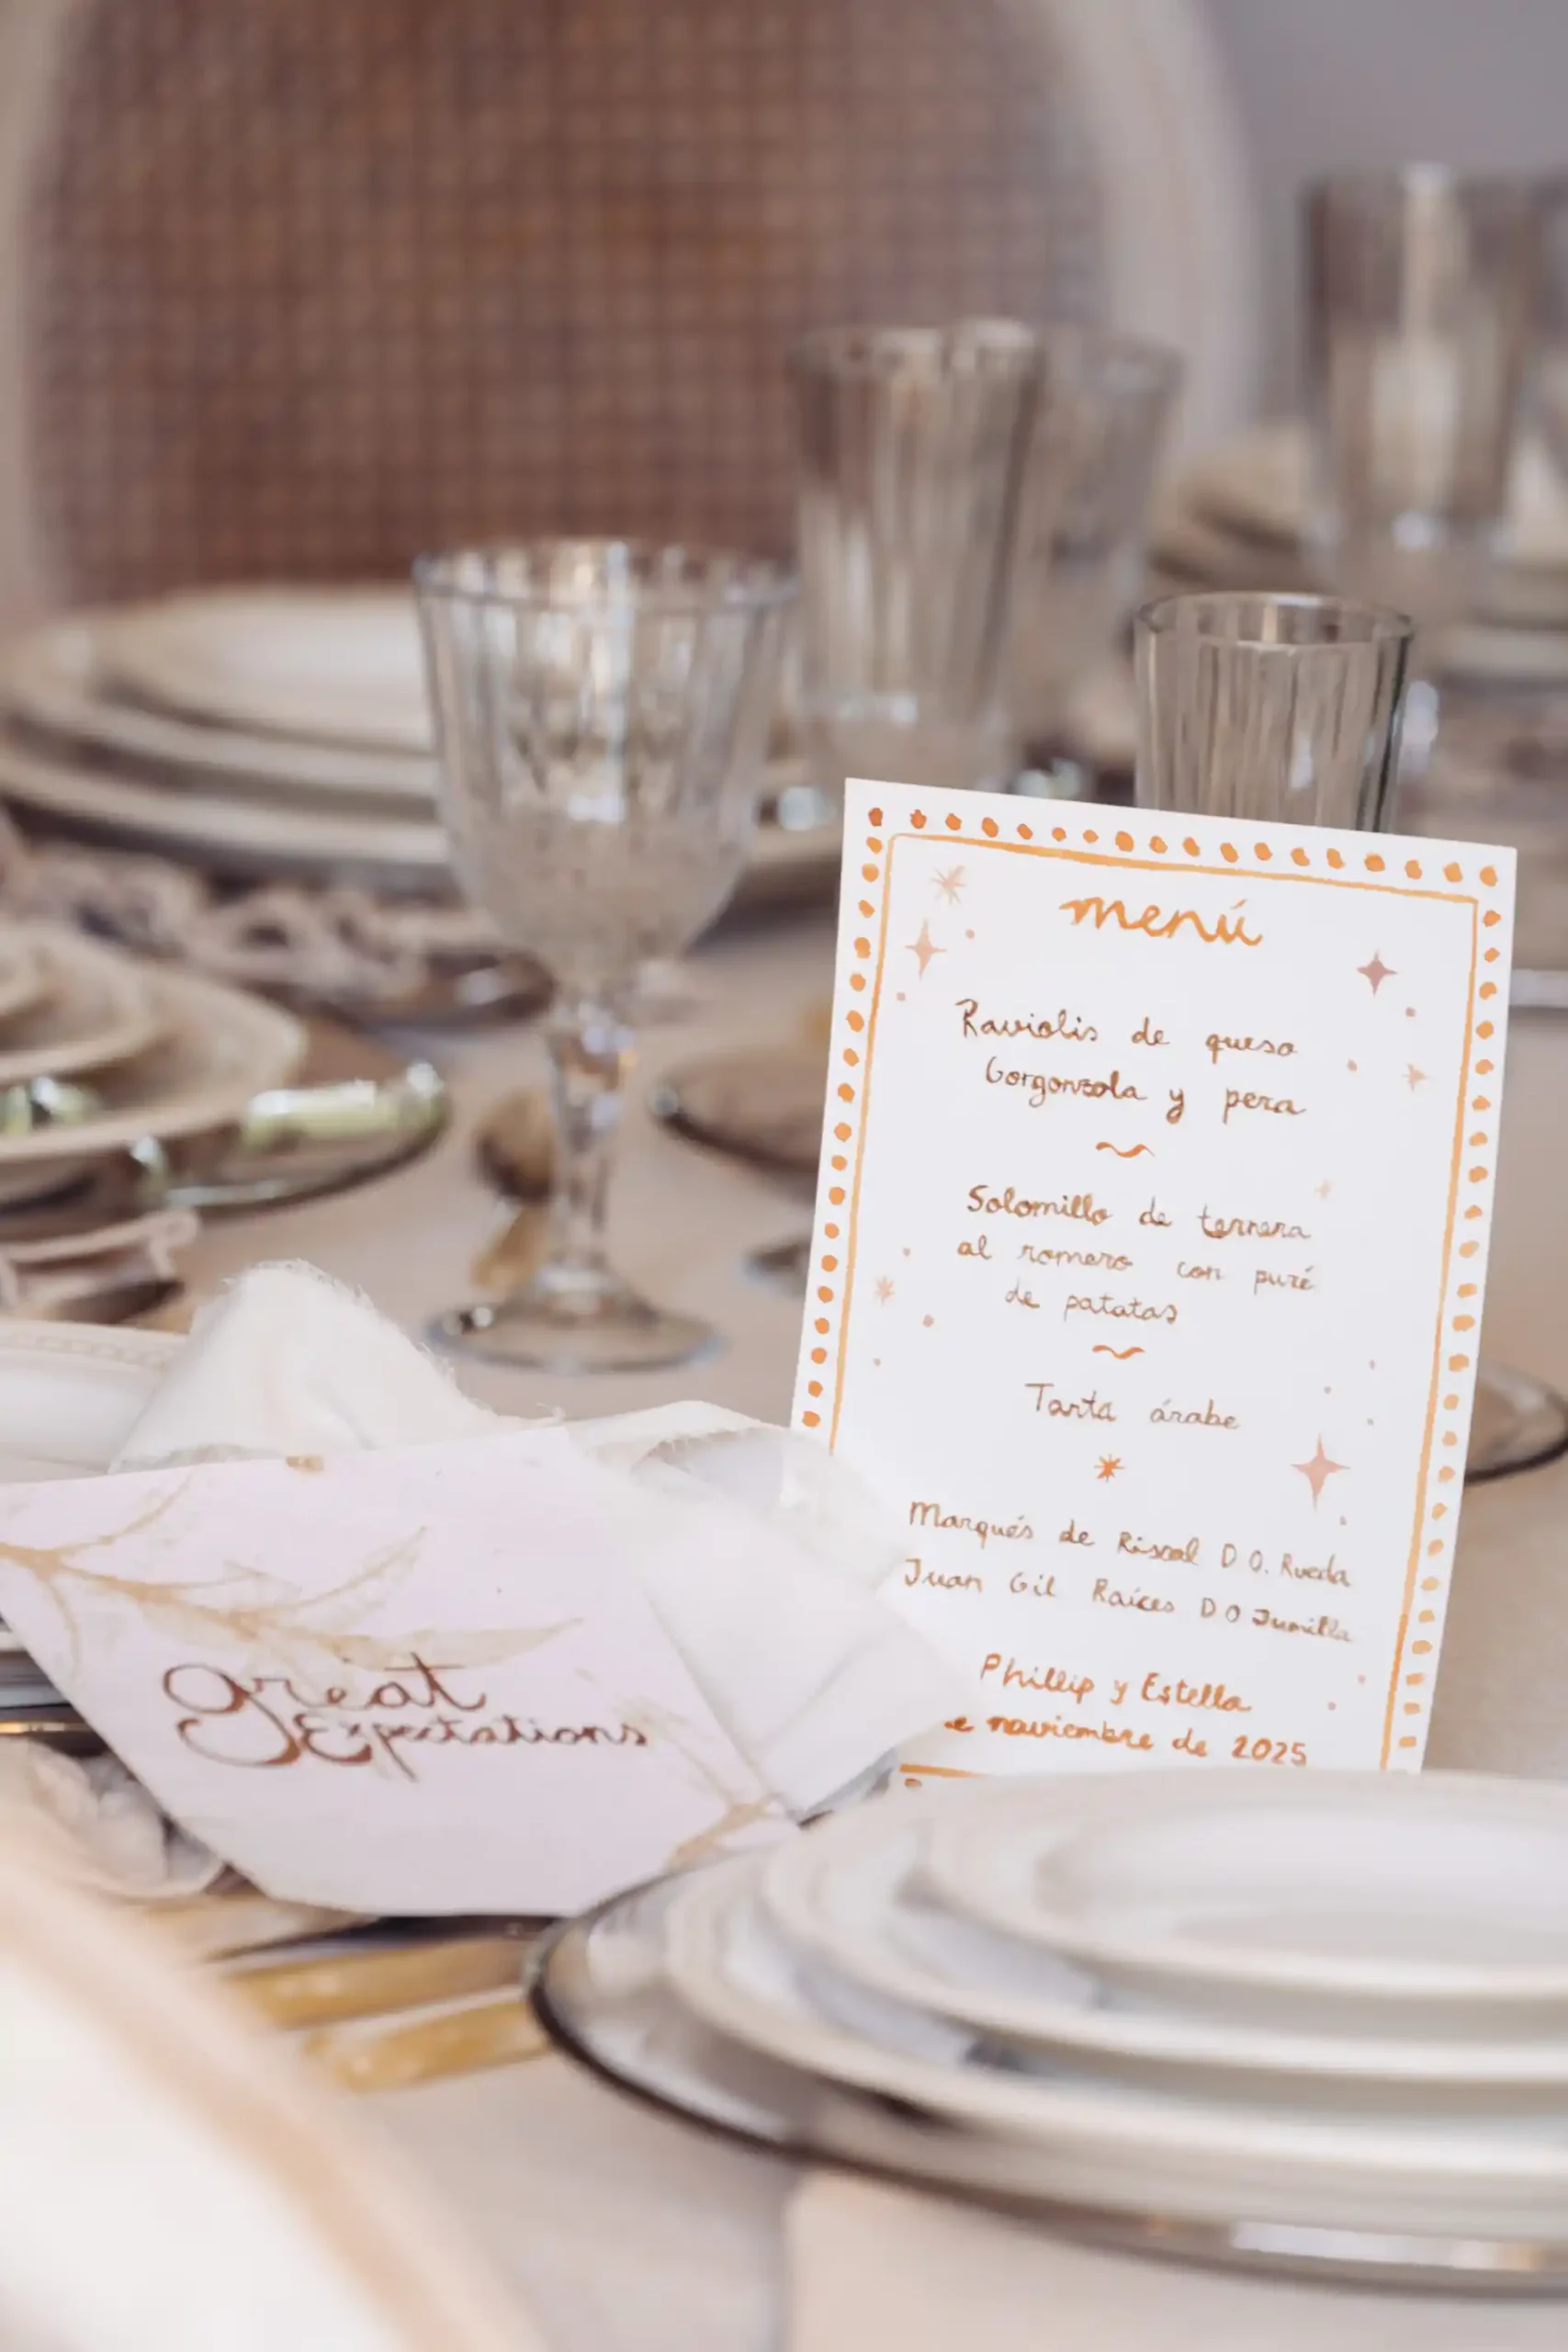 menú
Raviolis de queso
Gorgonzola y pera
Solomillo de ternera
al romero con puré
de patatas
Tarta árabe
Marqués de Riscal D O. Rueda
Juan Gil Raíces D O Jumilla
Phillip y Estella
noviembre de 2025
great
Expectations